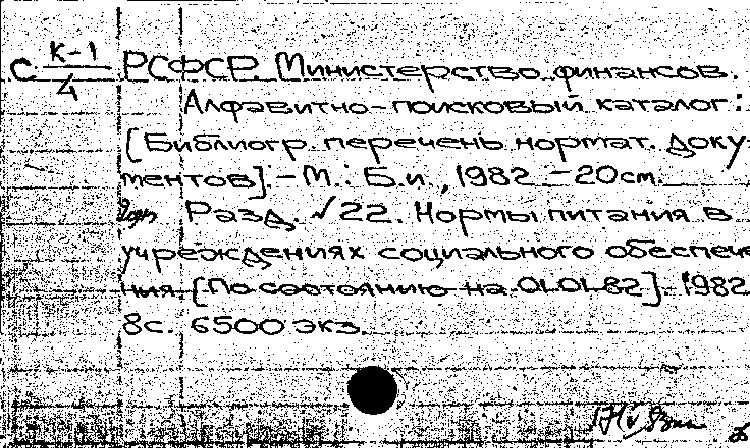 С К-1/4 РСФСР. Министерство финансов.
Алфавитно-поисковый каталог:
[Библиогр. перечень нормат. доку-
ментов]. - М.: Б.и., 1982 - 20 см.
Разд. √ 22. Нормы питания в
учреждениях социального обеспече
ния. [По состоянию на 01.01.82]. - 1982
8с. 6500 экз.